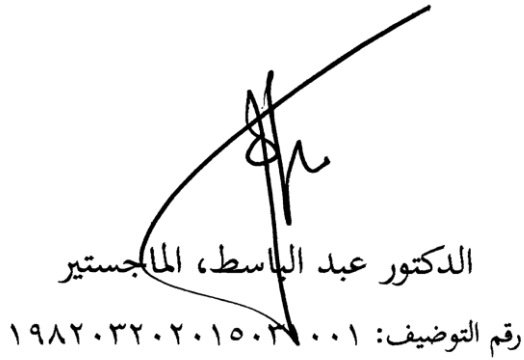 الدكتور عبد الباسط، الماجستير
رقم التوضيف: ١٩٨٢٠٣٢٠٢٠١٥٠٣١٠٠١